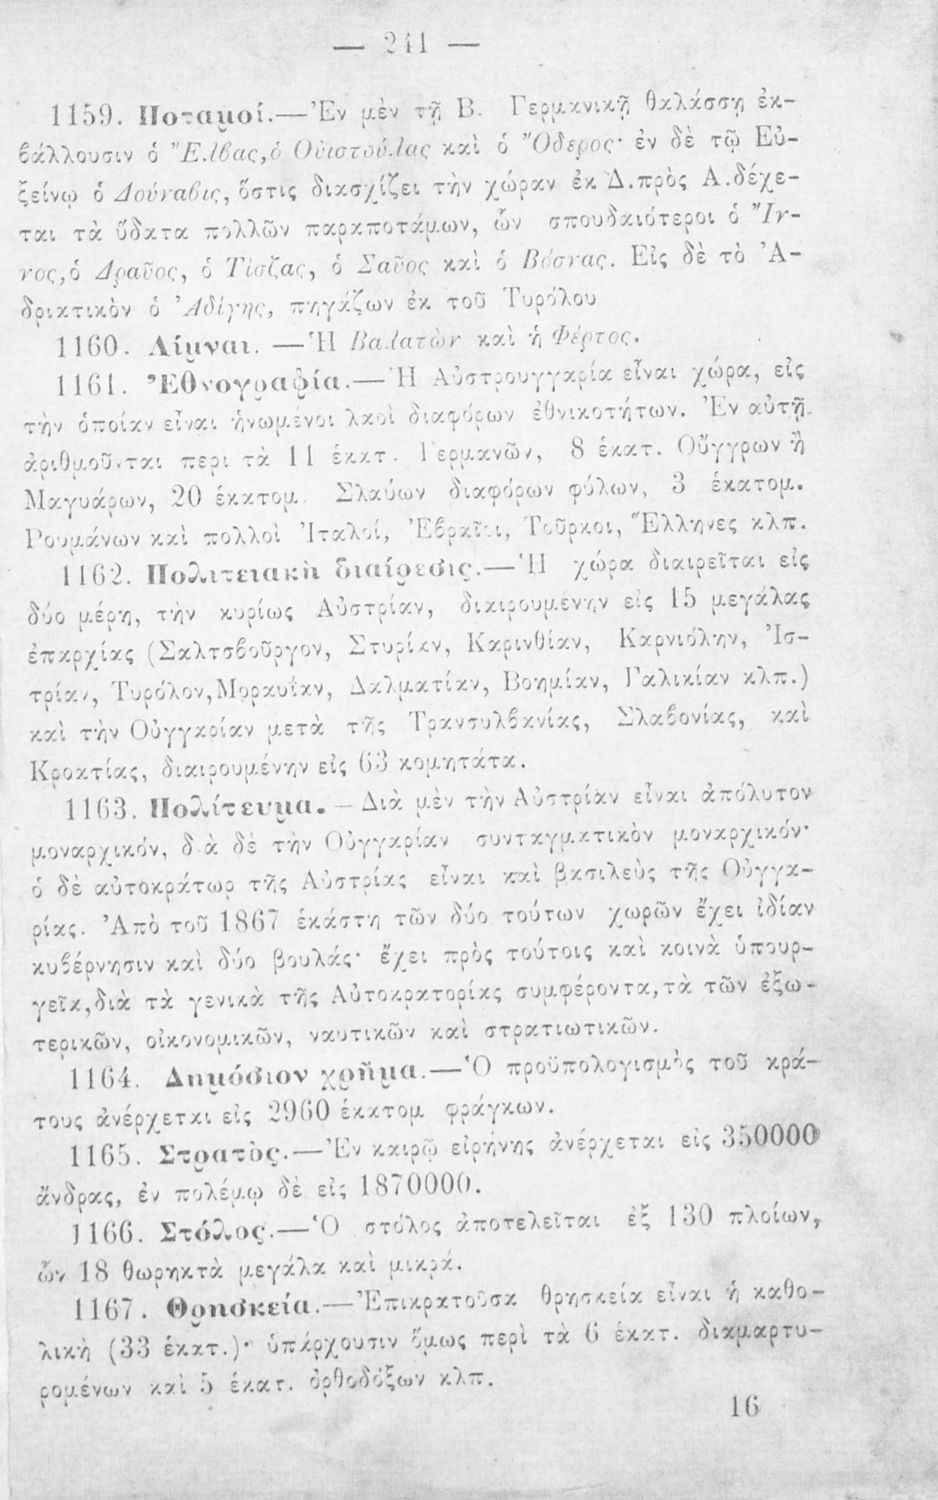 — 241 —
1159. Ποταμοί.—Ἐν μὲν τῇ Β. Γερμανικῇ θαλάσσῃ ἐκ-
βάλλουσιν ὁ Ἔλβας, ὁ Οὐιστούλας καὶ ὁ Ὄδερος· ἐν δὲ τῷ Εὐ-
ξείνῳ ὁ Δούναβις, ὅστις διασχίζει τὴν χώραν ἐκ Δ. πρὸς Α. δέχε-
ται τὰ ὕδατα πολλῶν παραποτάμων, ὧν σπουδαιότεροι ὁ Ἴν-
νος, ὁ Δραῦος, ὁ Τίσζας, ὁ Σαῦος καὶ ὁ Βόσνας. Εἰς δὲ τὸ Ἀ-
δριατικὸν ὁ Ἀδίγης, πηγάζων ἐκ τοῦ Τυρόλου
1160. Λίμναι.—Ἡ Βαλατὼν καὶ ἡ Φέρτος.
1161. Ἐθνογραφία.—Ἡ Αὐστρουγγαρία εἶναι χώρα, εἰς
τὴν ὁποίαν εἶναι ἡνωμένοι λαοὶ διαφόρων ἐθνικοτήτων. Ἐν αὐτῇ
ἀριθμοῦνται περὶ τὰ 11 ἑκατ. Γερμανῶν, 8 ἑκατ. Οὔγγρων ἢ
Μαγυάρων, 20 ἑκατομ. Σλαύων διαφόρων φύλων, 3 ἑκατομ.
Ρουμάνων καὶ πολλοὶ Ἰταλοί, Ἑβραῖοι, Τοῦρκοι, Ἕλληνες κλπ.
1162. Πολιτειακὴ διαίρεσις.—Ἡ χώρα διαιρεῖται εἰς
δύο μέρη, τὴν κυρίως Αὐστρίαν, διαιρουμένην εἰς 15 μεγάλας
ἐπαρχίας (Σαλτσβοῦργον, Στυρίαν, Καρινθίαν, Καρνιόλην, Ἰσ-
τρίαν, Τυρόλον, Μοραυΐαν, Δαλματίαν, Βοημίαν, Γαλικίαν κλπ.)
καὶ τὴν Οὐγγαρίαν μετὰ τῆς Τρανσυλβανίας, Σλαβονίας, καὶ
Κροατίας, διαιρουμένην εἰς 63 κομητάτα.
1163. Πολίτευμα.—Διὰ μὲν τὴν Αὐστρίαν εἶναι ἀπόλυτον
μοναρχικόν, διὰ δὲ τὴν Οὐγγαρίαν συνταγματικὸν μοναρχικόν·
ὁ δὲ αὐτοκράτωρ τῆς Αὐστρίας εἶναι καὶ βασιλεὺς τῆς Οὐγγα-
ρίας. Ἀπὸ τοῦ 1867 ἑκάστη τῶν δύο τούτων χωρῶν ἔχει ἰδίαν
κυβέρνησιν καὶ δύο βουλάς· ἔχει πρὸς τούτοις καὶ κοινὰ ὑπουρ-
γεῖα, διὰ τὰ γενικὰ τῆς Αὐτοκρατορίας συμφέροντα, τὰ τῶν ἐξω-
τερικῶν, οἰκονομικῶν, ναυτικῶν καὶ στρατιωτικῶν.
1164. Δημόσιον χρῆμα.—Ὁ προϋπολογισμὸς τοῦ κρά-
τους ἀνέρχεται εἰς 2960 ἑκατομ φράγκων.
1165. Στρατὸς.—Ἐν καιρῷ εἰρήνης ἀνέρχεται εἰς 350000
ἄνδρας, ἐν πολέμῳ δὲ εἰς 1870000.
1166. Στόλος.—Ὁ στόλος ἀποτελεῖται ἐξ 130 πλοίων,
ὧν 18 θωρηκτὰ μεγάλα καὶ μικρά.
1167. Θρησκεία.—Ἐπικρατοῦσα θρησκεία εἶναι ἡ καθο-
λικὴ (33 ἑκατ.)· ὑπάρχουσιν ὅμως περὶ τὰ 6 ἑκατ. διαμαρτυ-
ρομένων καὶ 5 ἑκατ. ὀρθοδόξων κλπ.
16